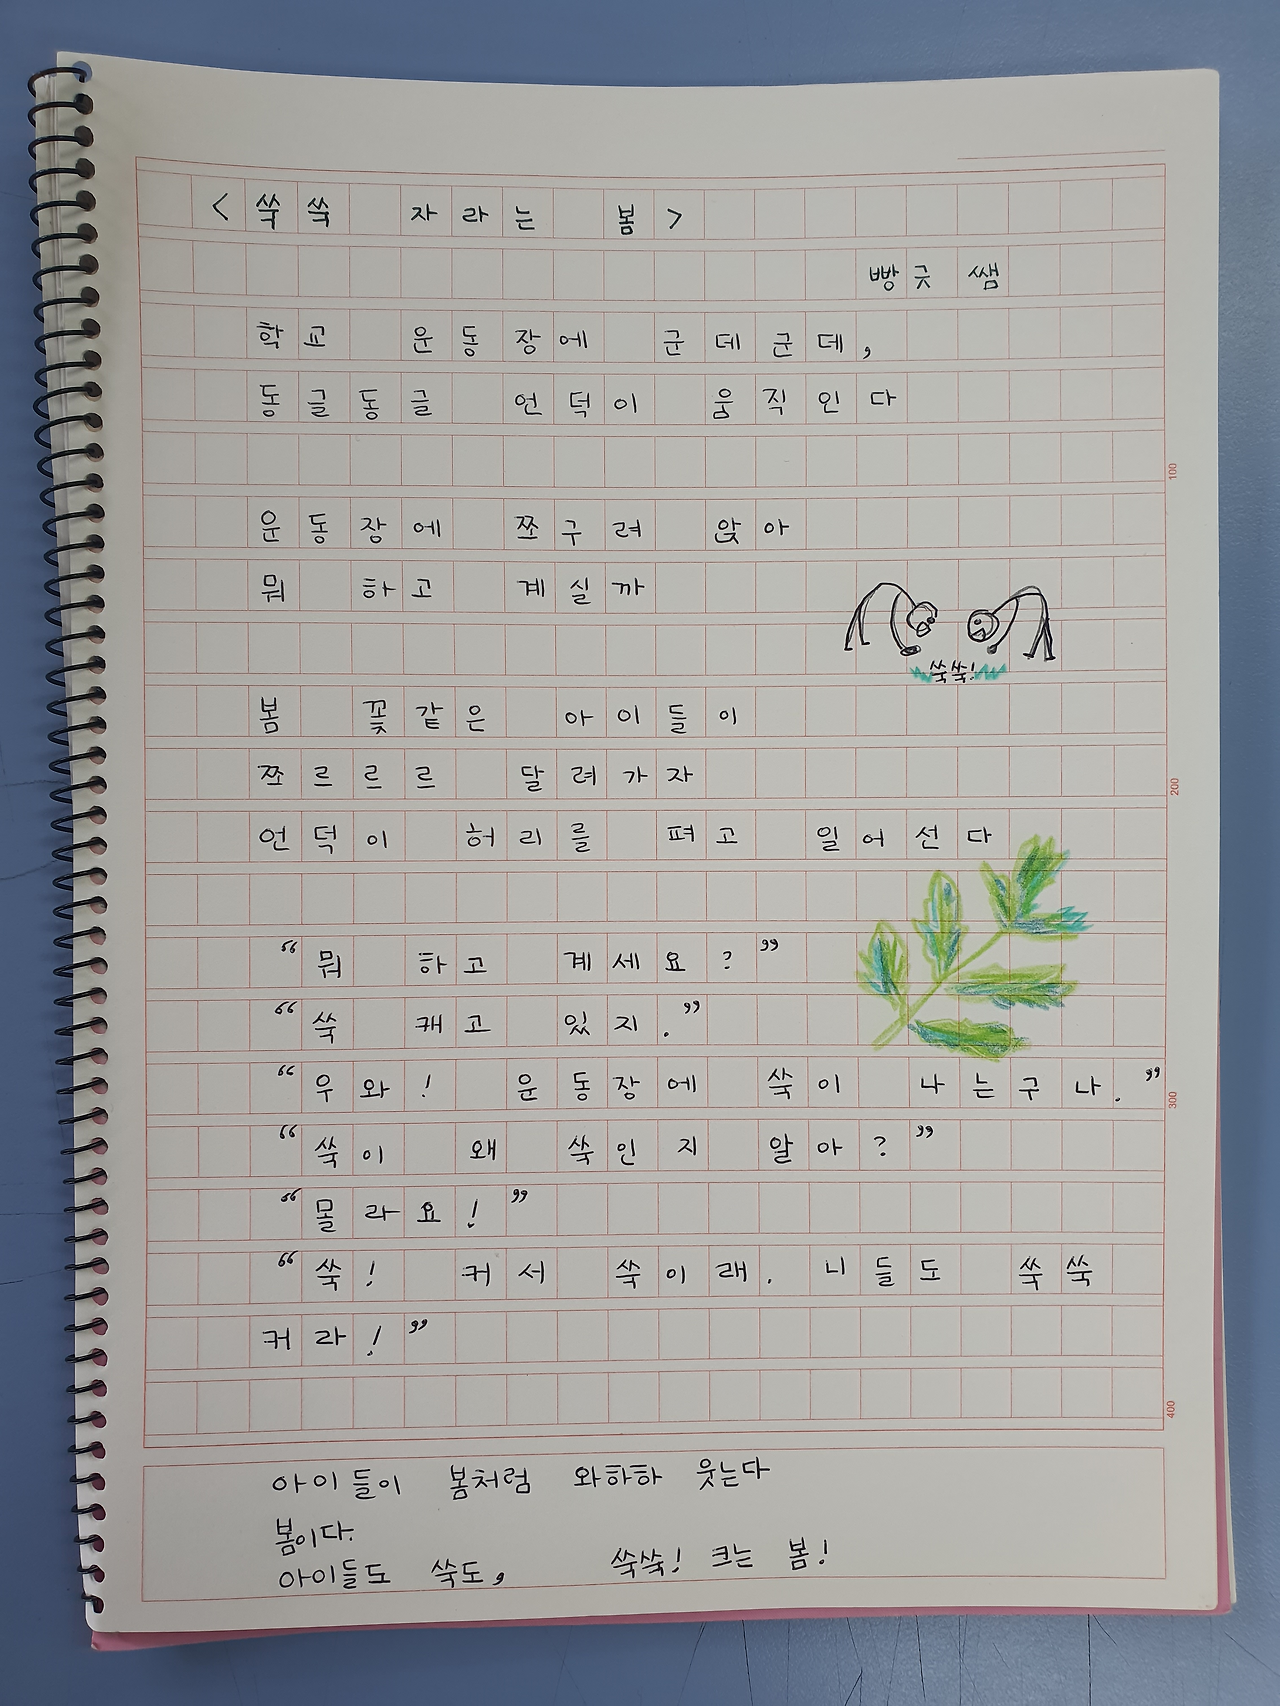 <쑥쑥 자라는 봄>
빵긋 쌤
학교 운동장에 군데군데,
동글동글 언덕이 움직인다
운동장에 쪼구려 앉아
뭐 하고 계실까
쑥쑥!
봄 꽃같은 아이들이
쪼르르르 달려가자
언덕이 허리를 펴고 일어선다
"뭐 하고 계세요?"
"쑥 캐고 있지."
"우와! 운동장에 쑥이 나는구나."
"쑥이 왜 쑥인지 알아?"
"몰라요!"
"쑥! 커서 쑥이래. 니들도 쑥쑥
커라!"
아이들이 봄처럼 와하하 웃는다
봄이다.
아이들도 쑥도, 쑥쑥! 크는 봄!
100
200
300
400